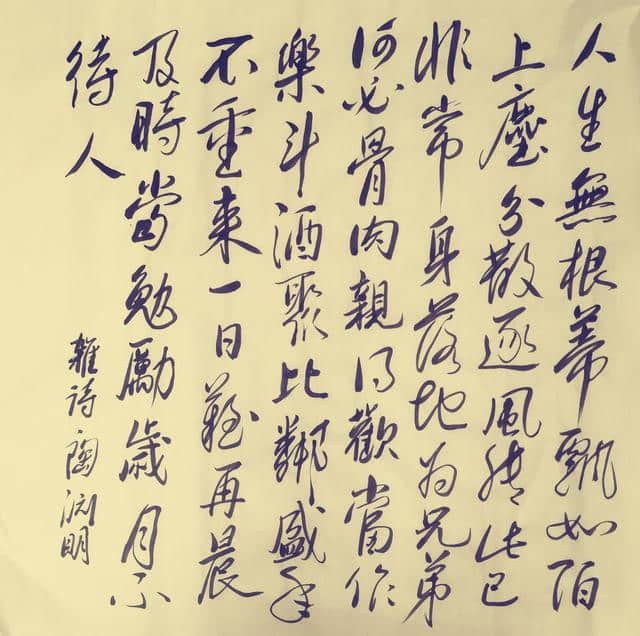 人生無根蒂飄如陌
上塵分散逐風轉此已
非常身落地为兄弟
何必骨肉親得歡當作
樂斗酒聚比鄰盛年
不重来一日難再晨
及時當勉勵歲月不
待人
雜诗陶渊明